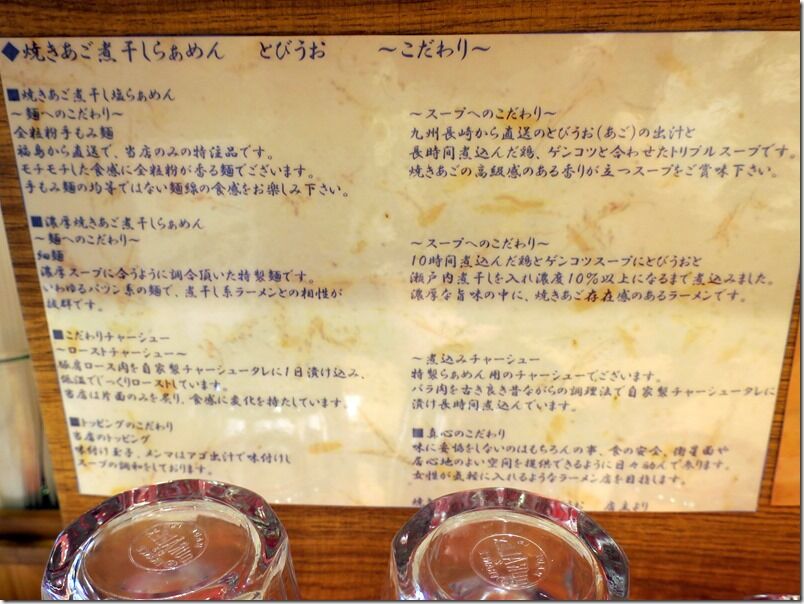 ◆焼きあご煮干しらぁめん　とびうお　～こだわり～
■焼きあご煮干し塩らぁめん
～麺へのこだわり～
全粒粉手もみ麺
福島から直送で、当店のみの特注品です。
モチモチした食感に全粒粉が香る麺でございます。
手もみ麺の均等ではない麺線の食感をお楽しみ下さい。
～スープへのこだわり～
九州長崎から直送のとびうお(あご)の出汁と
長時間煮込んだ鶏、ゲンコツと合わせたトリプルスープです。
焼きあごの高級感のある香りが立つスープをご賞味下さい。
■濃厚焼きあご煮干しらぁめん
～麺へのこだわり～
細麺
濃厚スープに合うように調合頂いた特製麺です。
いわゆるパツン系の麺で、煮干し系ラーメンとの相性が
抜群です。
～スープへのこだわり～
10時間煮込んだ鶏とゲンコツスープにとびうおと
瀬戸内煮干しを入れ濃度10%以上になるまで煮込みました。
濃厚な旨味の中に、焼きあご存在感のあるラーメンです。
■こだわりチャーシュー
～ローストチャーシュー～
豚肩ロース肉を自家製チャーシュータレに1日漬け込み、
低温でじっくりローストしています。
当店は片面のみを炙り、食感に変化を持たしています。
～煮込みチャーシュー
特製らぁめん用のチャーシューでございます。
バラ肉を古き良き昔ながらの調理法で自家製チャーシュータレに
漬け長時間煮込んでいます。
■トッピングのこだわり
当店のトッピング
味付け玉子、メンマはアゴ出汁で味付けし
スープの調和をしております。
■真心のこだわり
味に妥協をしないのはもちろんの事、食の安全、衛星面や
居心地のよい空間を提供できるように日々励んで参ります。
女性が気軽に入れるようなラーメン店を目指します。
店主より